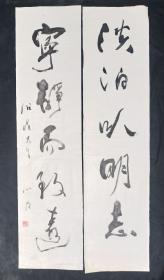 淡泊以明志
寧静而致遠